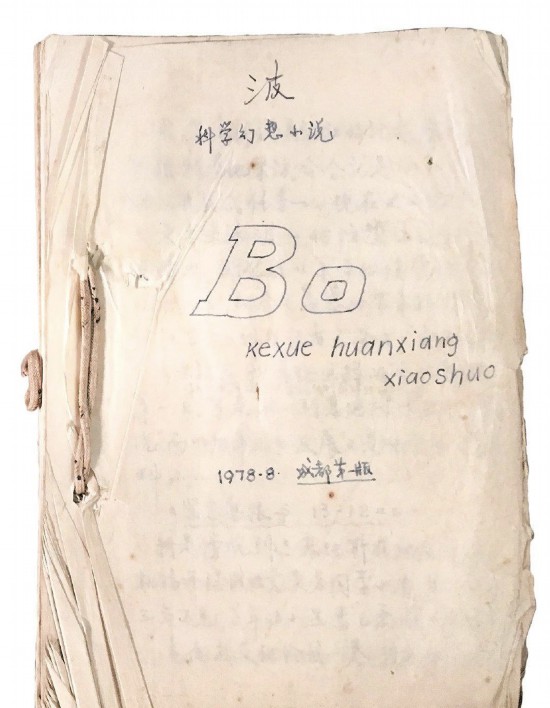 波
科学幻想小说
Bo
Kexue huanxiang
xiaoshuo
1978·8· 成都第一版